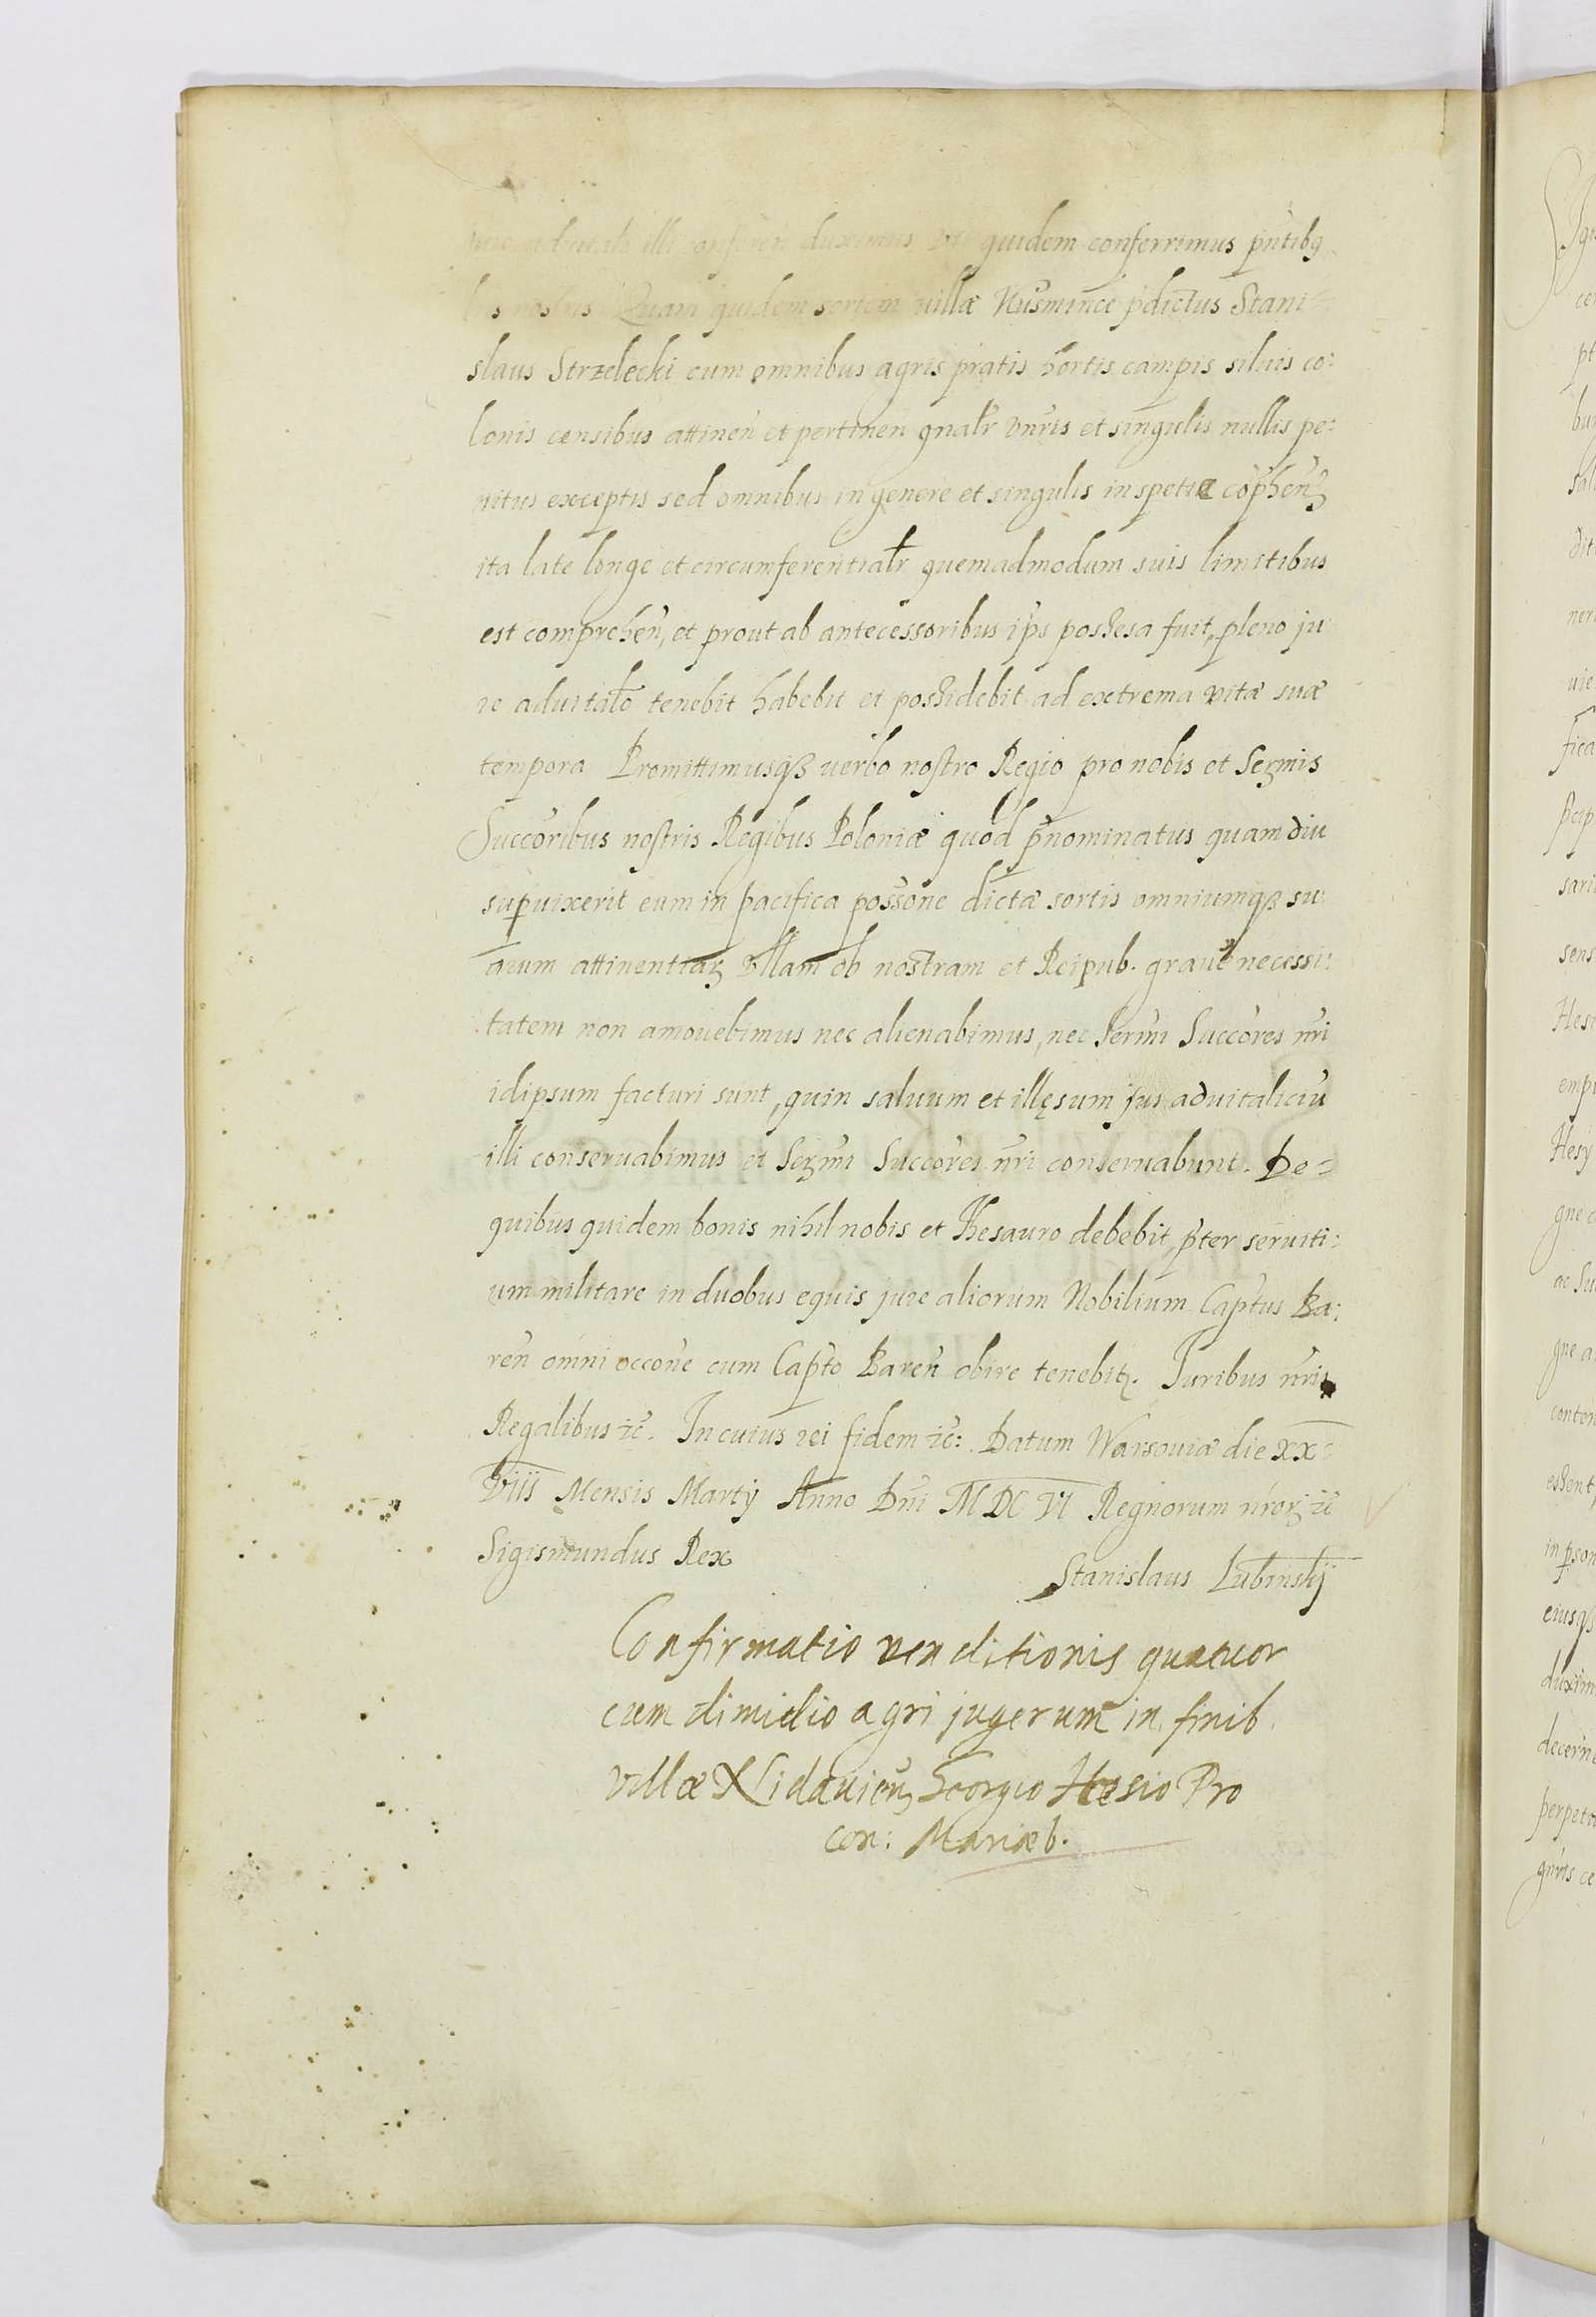 illi conferen duximus uti quidem conferrimus pñtibq
nostris Quam quidem sortem villæ Nusmince p̃dictus Stani=
slaus Strzelecki cum omnibus agris pratis hortis campis siluis co:
lonis censibus attineñ et pertineñ gnalr̃ vnĩris et singulis nullis pe:
nitus exceptis sed omnibus in genere et singulis in spetie cõpheñꝫ
ita late longe et circumferentialr̃ quemadmodum suis limitibus
est compreheñ, et prout ab antecessoribus ip̃s possesa fuit, pleno ju
re aduitalõ tenebit habebit et possidebit ad extrema vitæ suæ
tempora Promittimusqꝫ uerbo nostro Regio pro nobis et Serm̃is
Succõribus nostris Regibus Poloniæ quod p̃nominatus quamdiu
supuixerit eum in pacifica possõne dictæ sortis omniumqꝫ su:
arum attinentiarꝫ ullam ob nostram et Reipub. grauẽ necessi:
tatem non amouebimus nec alienabimus, nec Serm̃i Succõres nr̃i
idipsum facturi sunt, quin saluum et illęsum jus aduitaliciũ
illi conseruabimus et Serm̃i Succõres nr̃i conseruabunt. De=
quibus quidem bonis nihil nobis et Thesauro debebit, p̃ter seruiti:
um militare in duobus equis jure aliorum Nobilium Cap̃tus Ba:
reñ omni occõne cum Cap̃to Bareñ obire tenebitꝫ. Juribus nr̃is
Regalibus ꝛc̃. In cuius rei fidem ꝛc̃: Datum Warsouiæ die XX=
Viis Mensis Martij Anno Dñi M DC VI Regnorum nr̃orꝫ ꝛc̃
Sigismundus Rex
Stanislaus Lubinskij
Confirmatio venditionis quatuor
cum dimidio agri jugerum in finib.
villæ Georgio Hesio Pro
con: Mariæb.